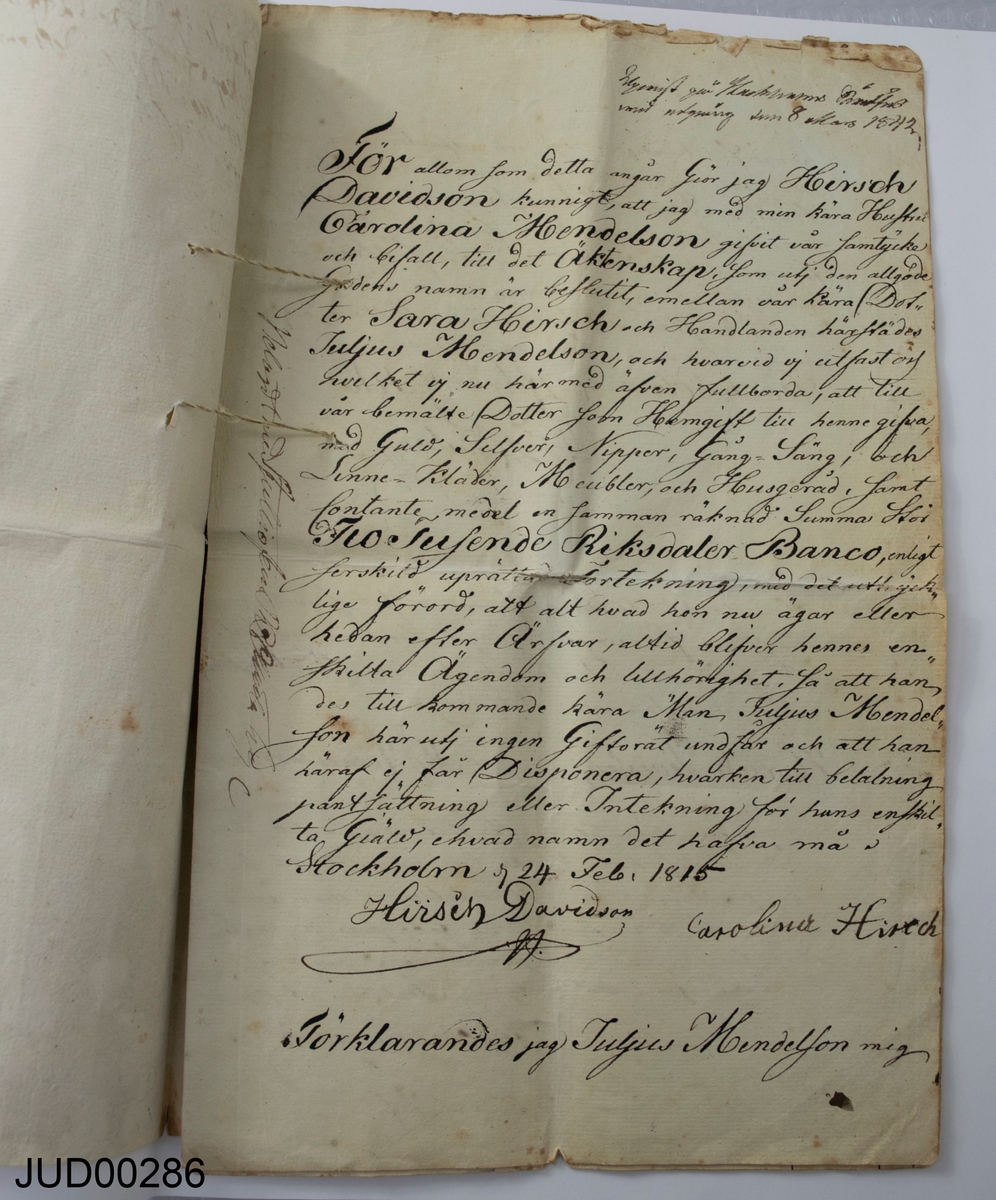 den 8 Mars 1842
För allom som detta angår Giör jag Hirsch
Davidson kunnigt, att jag med min kära Hustru
Carolina Mendelson gifvit vår samtycke
och bifall, till det Äktenskap, som utj den allgode
Gudens namn är beslutit, emellan vår kära Dot„
ter Sara Hirsch och Handlanden härstädes
Juljus Mendelson, och hvarvid vj utfäst oss
hvilket vj nu här med äfven fullborda, att till
vår bemälte Dotter som Hemgift till henne gifva
med Guld, Silfver, Nipper, Gång= Säng, och
Linne= Kläder, Meubler, och Husgeråd, samt
Contante medel en samman räknad Summa Stor
Tio Tusende Riksdaler Banco, enligt
serskild uprättad Förtekning, med det utryck„
lige förord, att alt hvad hon nu ägar eller
hedan efter Ärfvar, altid blifver hennes en„
skilta Ägendom och tillhörighet, så att han„
des till kommande kära Man, Juljus Mendel„
son här utj ingen Giftorät undfår och att han
häraf ej får Disponera, hvarken till betalning
pantsättning eller Intekning för hans enskil„
ta Giäld, ehvad namn det hafva må
Stockholm d 24 Feb: 1815
Hirsch Davidson
Carolina Hirsch
Förklarandes jag Juljus Mendelson mig
JUD00286